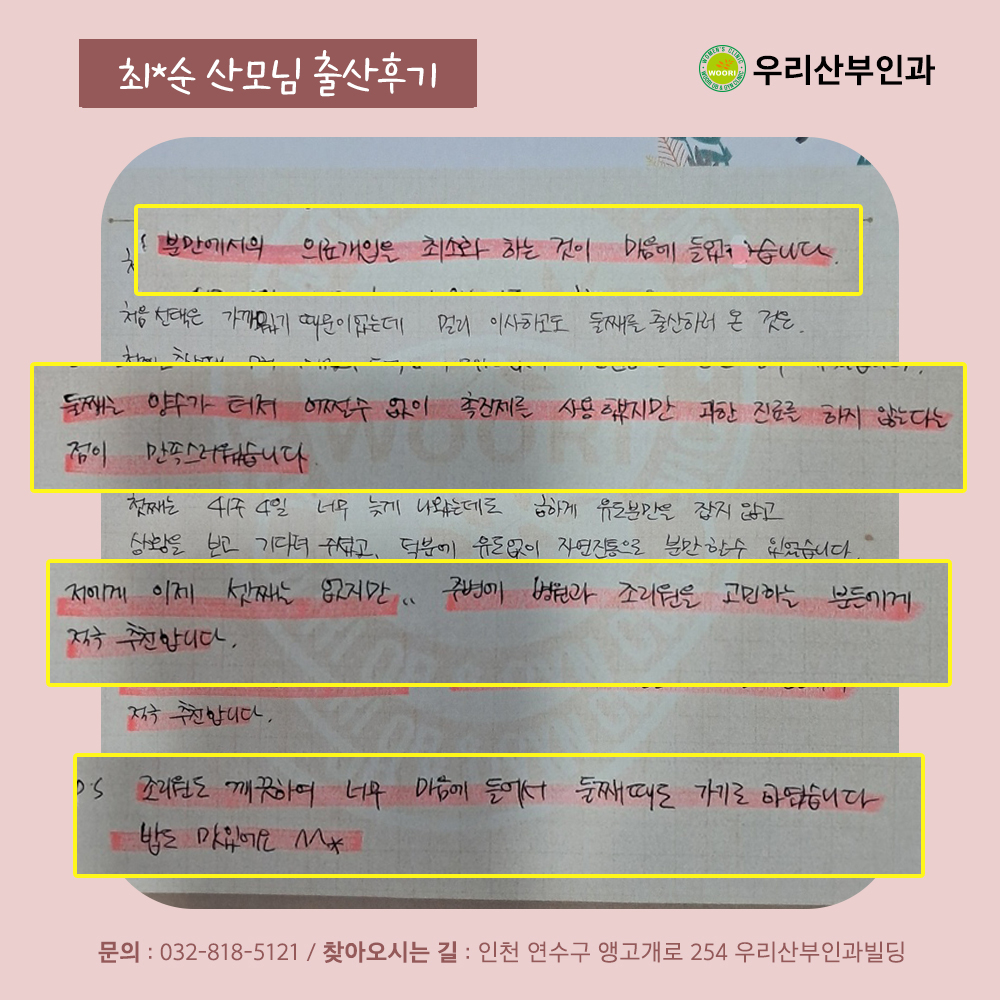 최*순 산모님 출산후기
WOMEN'S CLINIC
WOORI
WOORI OB & GYN CLINIC
우리산부인과
분만에서의 의료개입을 최소화 하는 것이 마음에 들었습니다.
처음 선택은 가까웠기 때문이었는데 멀리 이사하고도 둘째를 출산하러 온 것은.
둘째는 양수가 터져 어쩔수 없이 촉진제를 사용했지만 과한 진료를 하지 않는다는
점이 만족스러웠습니다
첫째는 41주 4일 너무 늦게 나왔는데도 급하게 유도분만을 잡지 않고
상황을 보고 기다려 주셨고, 덕분에 유도없이 자연진통으로 분만할수 있었습니다.
저에게 이제 셋째는 없지만.. 주변에 병원과 조리원을 고민하는 분들에게
적극 추천합니다.
적극 추천합니다.
P.S 조리원도 깨끗하여 너무 마음에 들어서 둘째때도 가기로 하였습니다
밥도 맛있어요 ^^*
문의 : 032-818-5121 / 찾아오시는 길 : 인천 연수구 앵고개로 254 우리산부인과빌딩